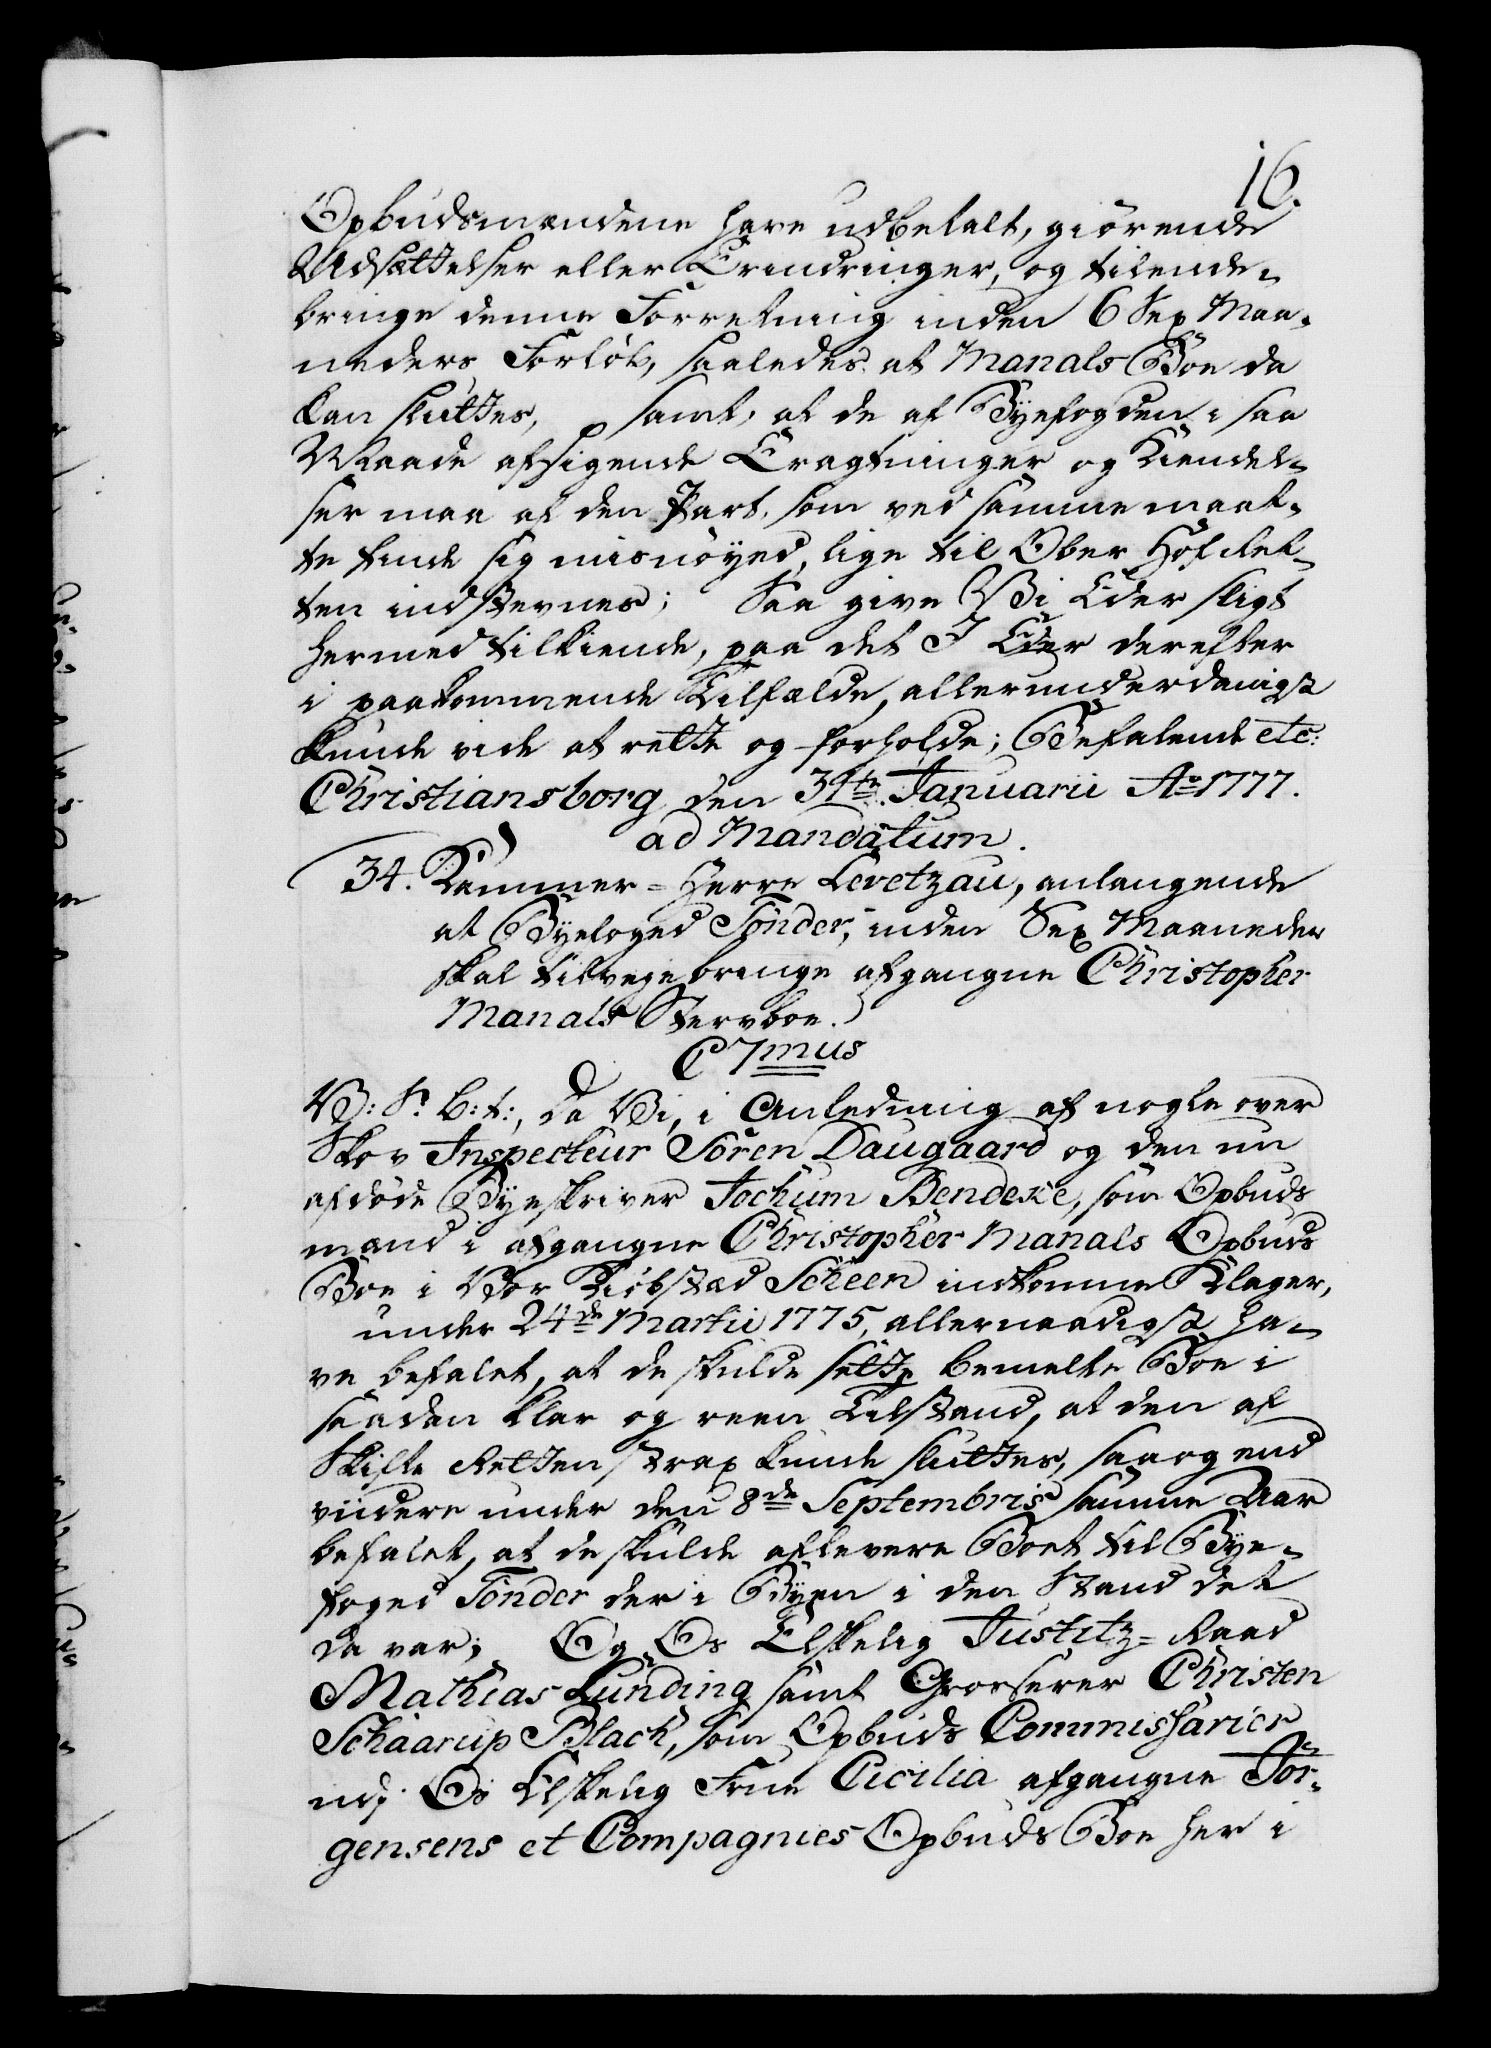 16.
Opbudsmændene have udbetalt, giörende
Udsættelser eller Erindringer, og tilende-
bringe denne Forretning inden 6 Sex Maa-
neders Forlöb, saaledes at Manals Boe da
kan sluttes, samt, at de af Byefogden i saa
Maade afsigende Eragtninger og Kiendel-
ser maa af den Part, som ved samme maat-
te finde sig misnöyed, lige til Ober Hof Ret-
ten indstevnes; Saa give Vi Eder sligt
hermed tilkiende, paa det I Eder derefter
i paakommende Tilfælde, allerunderdanigst
kunde vide at rette og forholde; Befalende etc:
Christiansborg den 31te Januarii Ao 1777.
ad Mandatum.
34. Kammer-Herre Levetzau, anlangende
at Byefoged Tönder, inden Sex Maaneder
skal tilvejebringe afgangne Christopher
Manals Stervboe.
C 7mus
V: S: B: t:, Da Vi, i Anledning af nogle over
Skov Inspecteur Sören Daugaard og den nu
afdöde Byeskriver Jochum Bendeke, som Opbuds
mænd i afgangne Christopher Manals Opbuds
Boe i Vor Kiöbstæd Scheen indkomne Klager,
under 24de Martii 1775, allernaadigst ha-
ve befalet, at de skulde sætte bemelte Boe i
saadan klar og reen Tilstand, at den af
Skifte Retten strax kunde sluttes, saa og end
viidere under den 8de Septembris samme Aar
befalet, at de skulde aflevere Boet til Bye-
foged Tönder der i Byen i den Stand det
da var; Og Os Elskelig Justitz-Raad
Mathias Lunding samt Grosserer Christen
Schaarup Black, som Opbuds Commissarier
udj Os Elskelig Frue Cicilia afgangne Jör-
gensens et Compagnies Opbuds Boe her i